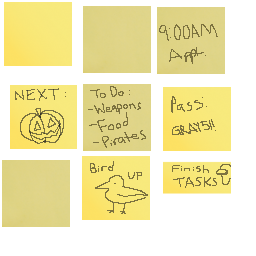 9:00AM
Appt.
NEXT:
To Do:
-Weapons
-Food
-Pirates
Pass:
GRAYS!!
Bird
UP
Finish
TASKS